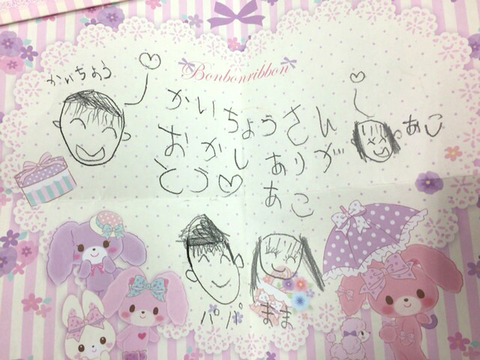 Bonbonribbon
かいちょう
かいちょうさん
おかし ありが
とう♡ あこ
あこ
パパ
まま